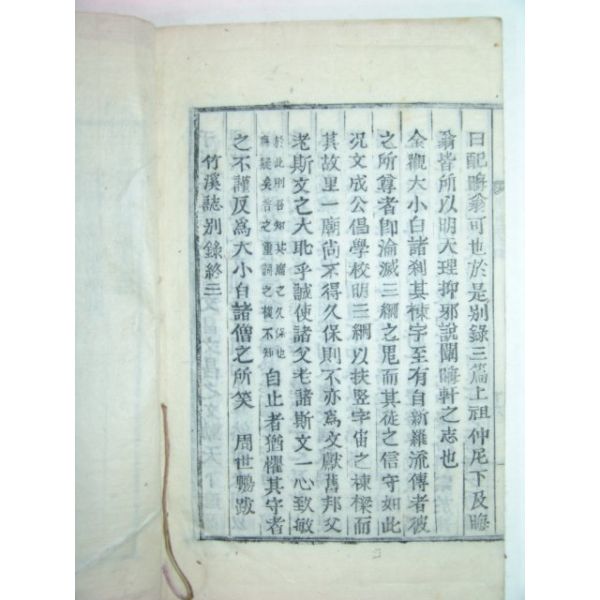 曰配晦翁可也於是別錄三篇上祖仲尼下及晦
翁皆所以明天理抑邪說闡晦軒之志也
余觀大小白諸刹其棟宇至有自新羅流傳者彼
之所尊者卽淪滅三綱之鬼而其徒之信守如此
况文成公倡學校明三綱以扶竪宇宙之棟樑而
其故里一廟尙不得久保則不亦爲文獻舊邦父
老斯文之大耻乎誠使諸父老諸斯文一心致敬
於此則吾知其廟之久保也
無疑矣吾之重詞之機不知
自止者猶懼其守者
之不謹反爲大小白諸僧之所笑 周世鵬跋
竹溪誌別錄終三